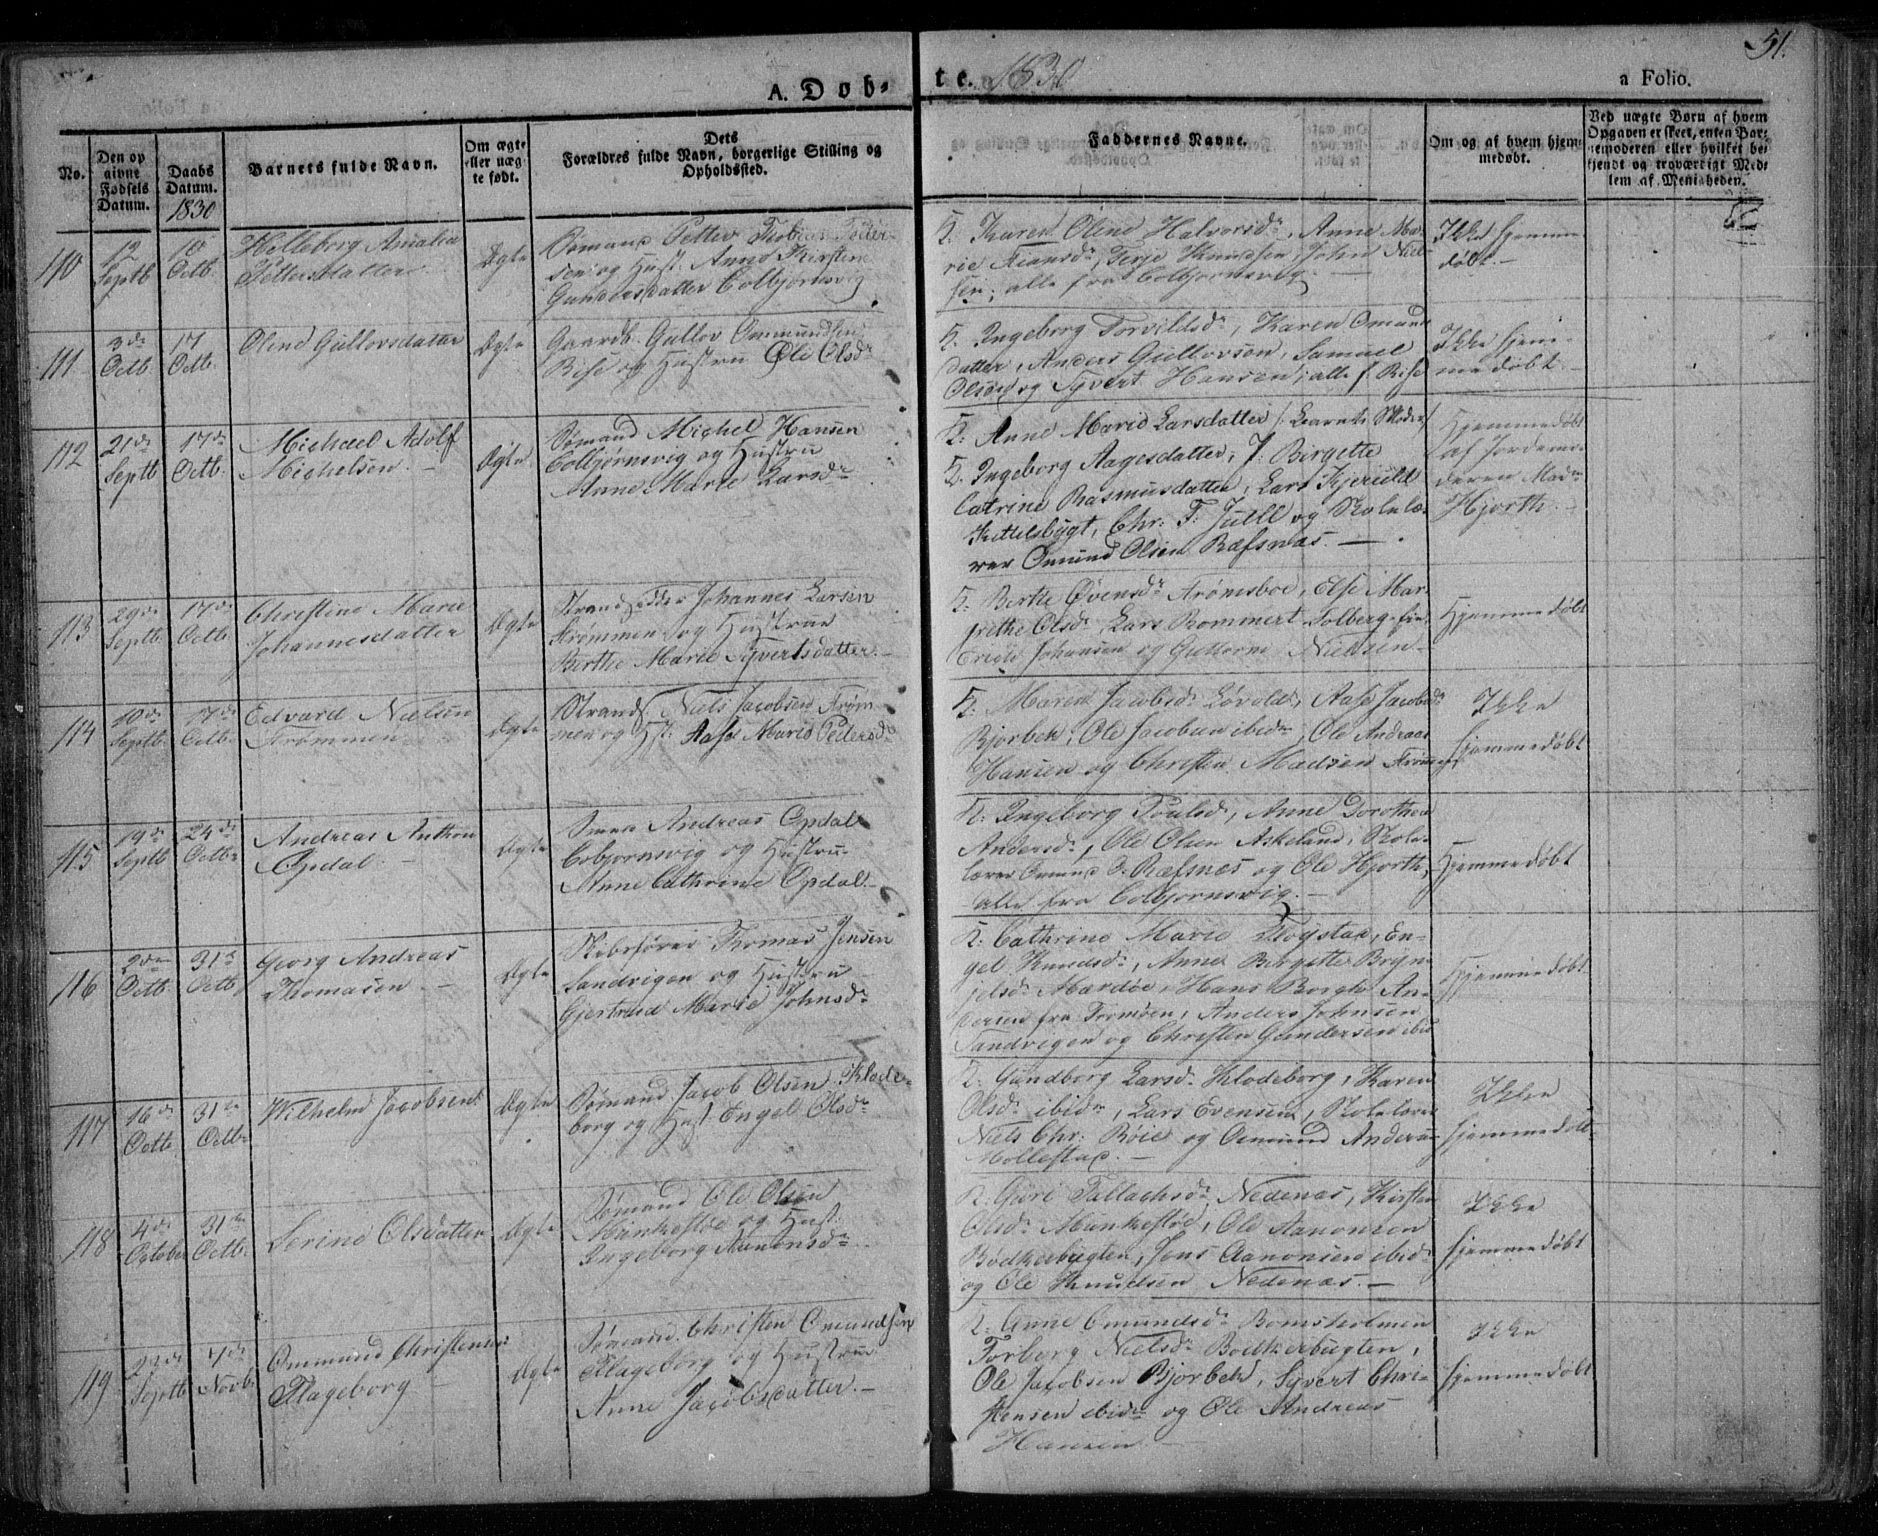 51.
A. Døb-
te. 1830
a Folio.
No.
Den op
givne
Fødsels
Datum.
Daabs
Datum.
1830
Barnets fulde Navn.
Om ægte
eller uæg-
te født.
Dets
Forældres fulde Navn, borgerlige Stilling og
Opholdssted.
Faddernes Navne.
Om og af hvem hjem-
medøbt.
Ved uægte Børn af hvem
Opgaven er skeet, enten Bar-
nemoderen eller hvilket be-
kjendt og troværdigt Med-
lem af Menigheden.
110
12
Septb
10
Octb.
Helleborg Amalia
Pettersdatter
Ægte
Sømand Petter Tobias Peder-
sen og Hust. Anne Kirstine
Gundersdatter Colbjørnsvig
K. Karen Oline Halvorsdr, Anne Ma-
rie, Terje Knudsen, John Niel-
sen; alle fra Colbjørnsvig
Ikke hjemme-
døbt.
111
3de
Octb.
17
Octb.
Oline Gullovsdatter
Ægte
Gaardb. Gullov Ommundsen
Bise og Hustru Øle Olsdr
K. Ingeborg Torvildsdr, Karen Omunds
datter, Anders Gullovsen, Samuel
Olsen og Syvert Hansen, alle f. Bise
Ikke hjem-
medøbt.
112
21de
Septb
17de
Octb.
Michael Adolf
Michelsen
Ægte
Sømand Michel Hansen
Colbjørnsvig og Hustru
Anne Marie Larsdr
K. Anne Marie Larsdatter /: Barnets Moder /
K. Ingeborg Aagesdatter, J: Birgette
Catrine Rasmusdatter, Lars Kjeruld
Kittelsbugt, Chr: F: Juell og Skolelæ-
rer Omund Olsen Ræfsnæs.
Hjemmedøbt
af Jordemo-
deren Madm
Hjorth.
113
29de
Septb
17de
Octb.
Christine Marie
Johannesdatter
Ægte
Strandsidder Johannes Larsen
Strømmen og Hustrue
Berthe Marie Syvertsdatter.
K. Berthe Øvensdr Strømsboe, Else Mar-
grethe Olsdr, Lars Rommert Solberg,
Johansen og Guttorm Nielsen
Hjemmedøbt
114
10de
Septb.
17de
Octb.
Edvard Nielsen
Strømmen
Ægte
Strands. Niels Jacobsen Strøm
men og Hst. Aase Marie Pedersdr
K. Maren Jacobsdr Løvold, Aase Jacobsdr
Bjorbek, Ole Jacobsen ibidm, Ole Andreas
Hansen og Christen Madsen Strømmen
Ikke
hjemmedøbt
115
19de
Septb
24de
Octbr
Andreas Anthon
Opdal
Ægte
Sman Andreas Opdal
Cobjornsvig og Hustru
Anne Cathrine Opdal
K. Ingeborg Poulsdr, Anne Dorothea
Andersdr, Ole Olsen Askeland, Skole-
lærer Omund O. Ræfsnes og Ole Hjorth,
alle fra Colbjornsvig.
Hjemmedøbt
116
2den
Octb
31te
Octb
Georg Andreas
Thomasen
Ægte
Skibsfører Thomas Jensen
Sandvigen og Hustru
Gjertrud Marie Johnsdr
K. Cathrine Marie Fløystad, En-
gel Knudsdr, Anne Birgette Bryn-
jelsdr Mærdøe, Hans Borgh An-
dersen fra Tromøen, Anders Johnsen
Sandvigen og Christen Gundersen ibid
Hjemmedøbt
117
16de
Octb
31te
Octbr
Wilhelm Jacobsen
Ægte
Sømand Jacob Olsen Klode-
borg og Hust Engel Olsdr
K. Gundborg Larsdr Klodeborg, Karen
Olsdr ibidm, Lars Evensen, Skolelærer
Niels Chr: Røie og Osmund Andersen
Mollestad.
Ikke
hjemmedøbt
118
4de
October
31te
Octb.
Serine Olsdatter
Ægte
Sømand Ole Olsen
Munkestøe og Hust:
Ingeborg Aanonsdr
K. Guri Tallachsdr Nedenæs, Kirsten
Olsdr Munkestøe, Ole Aanonsen
Bødkerbugten, Jens Aanonsen ibidm
og Ole Knudsen Nedenæs.
Ikke
hjemmedøbt
119
22de
Septb
7de
Novb.
Ommund Christensen
Flageborg
Ægte
Sømand. Christen Omundsen
Flageborg og Hustrue
Anne Jacobsdatter.
K. Anne Omundsdr Bomsholmen
Torborg Nielsdr Bødkerbugten,
Ole Jacobsen Bjorbek, Syvert Chri-
stensen ibidm og Ole Andreas
Hansen
Ikke
hjemmedøbt